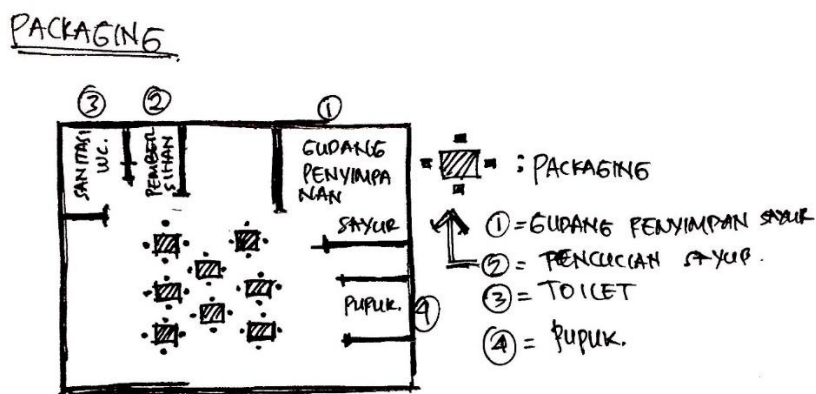 PACKAGING
③ ② ①
SANITASI
WC.
PEMBER
SIHAN
GUDANG
PENYIMPA
NAN
SAYUR
PUPUK.
④
: PACKAGING
① = GUDANG PENYIMPAN SAYUR
② = PENCUCIAN SAYUR.
③ = TOILET
④ = PUPUK.